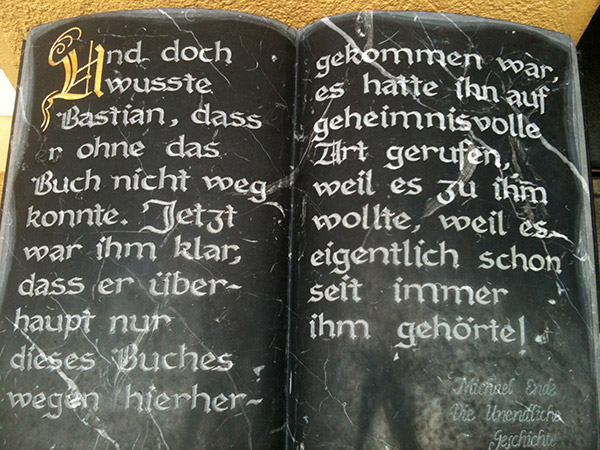 Und doch
wusste
Bastian, dass
r ohne das
Buch nicht weg
konnte. Jetzt
war ihm klar,
dass er über-
haupt nur
dieses Buches
wegen hierher-
gekommen war,
es hatte ihn auf
geheimnisvolle
Art gerufen,
weil es zu ihm
wollte, weil es
eigentlich schon
seit immer
ihm gehörte!
Michael Ende
Die Unendliche
Geschichte